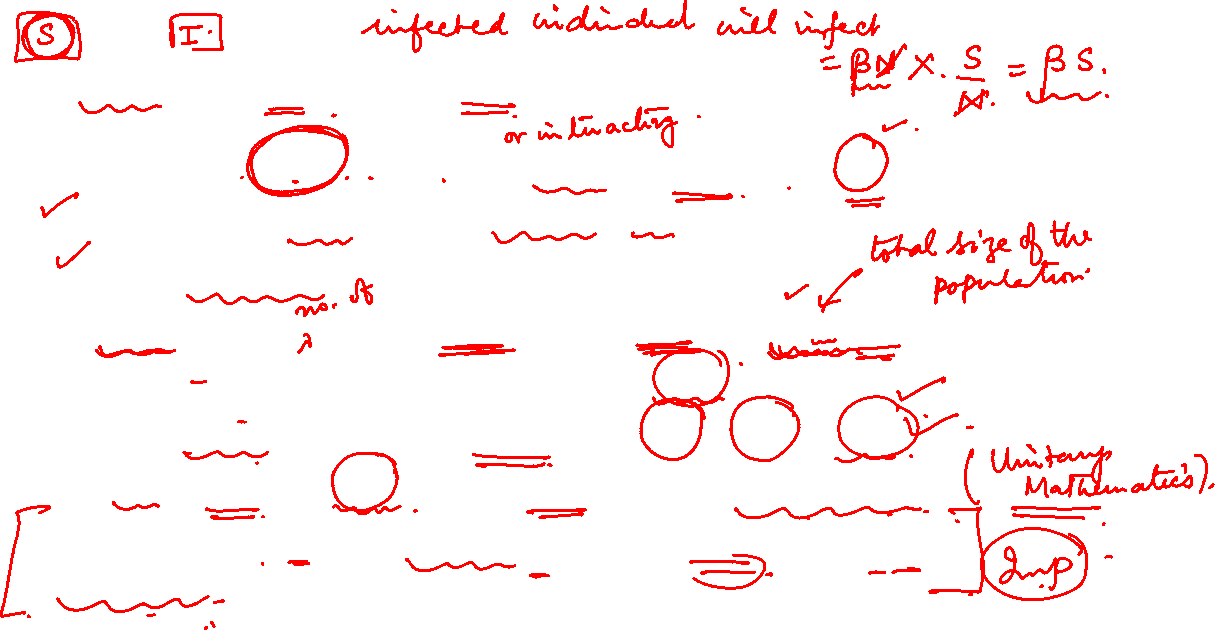 S I. infected individual will infect
= βN × . S/N. = βS.
or interacting.
total size of the
population.
no. of
λ
(Unitary
Mathematics).
Imp